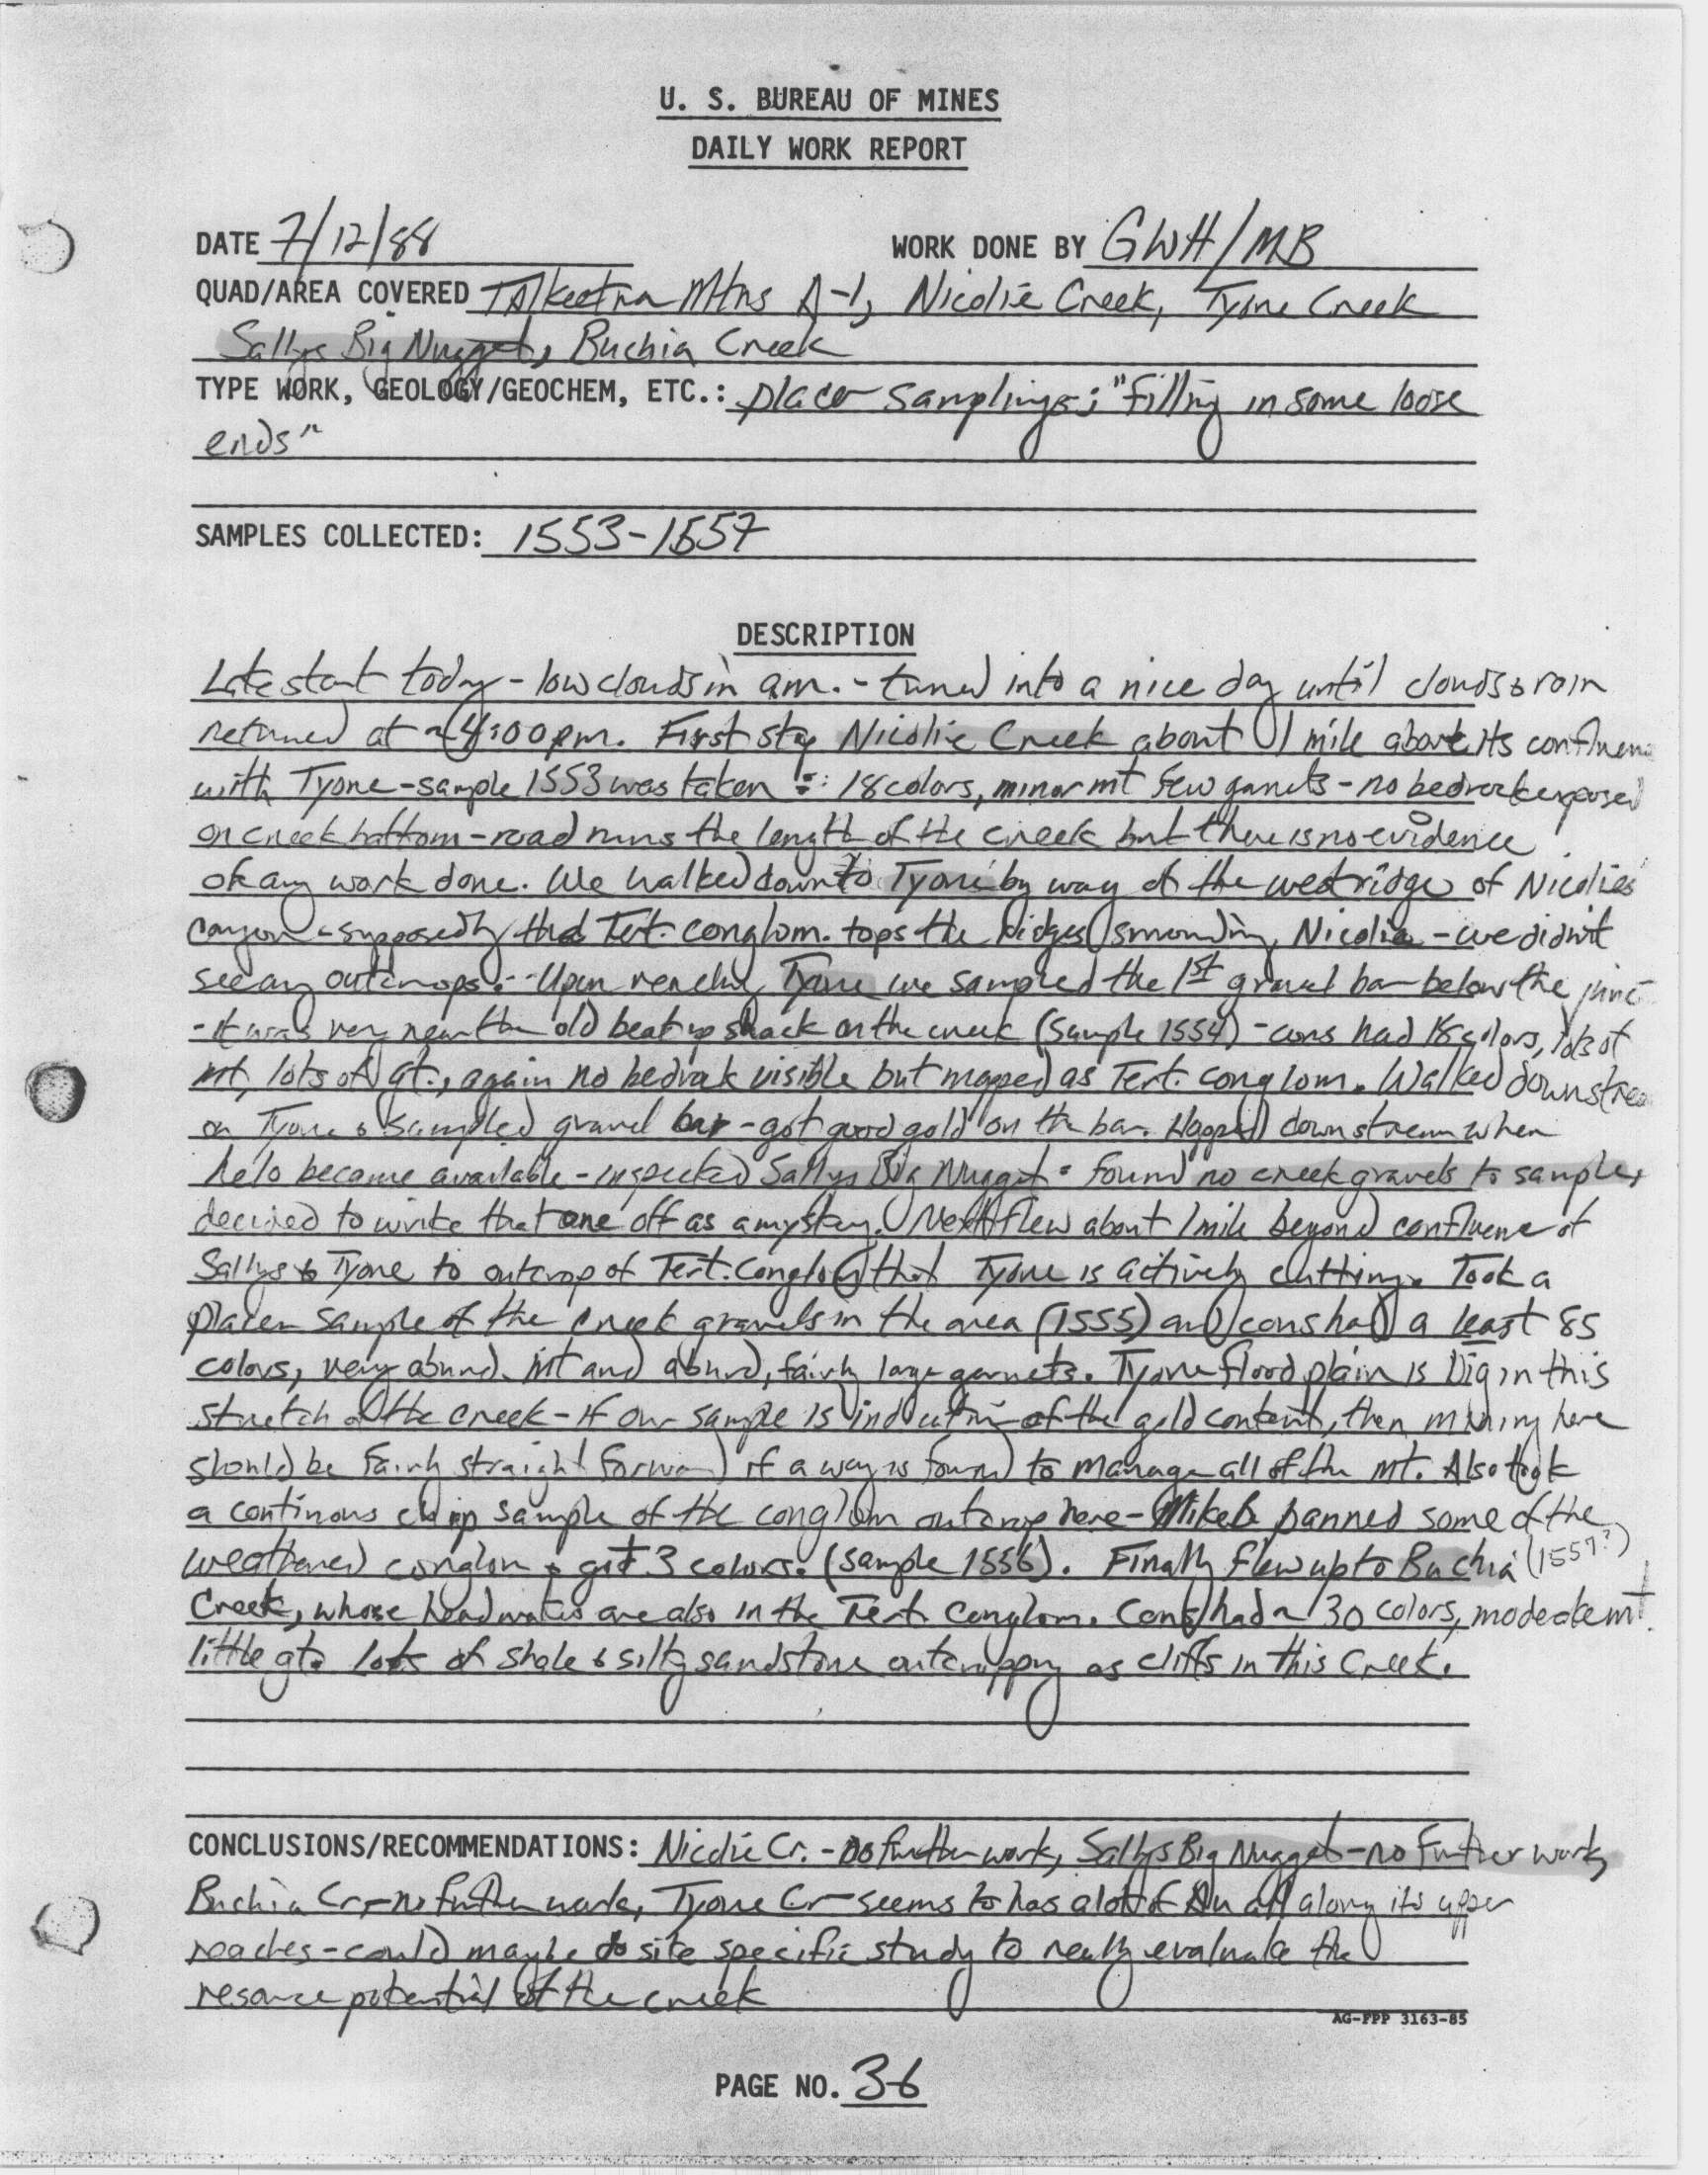 U. S. BUREAU OF MINES
DAILY WORK REPORT
DATE 7/12/88 WORK DONE BY GWH/MB
QUAD/AREA COVERED Talkeetna Mtns A-1, Nicolie Creek, Tyone Creek
Sallys Big Nugget, Buchia Creek
TYPE WORK, GEOLOGY/GEOCHEM, ETC.: placer samplings; "filling in some loose
ends"
SAMPLES COLLECTED: 1553-1557
DESCRIPTION
Late start today - low clouds in am. - turned into a nice day until clouds & rain
returned at ~4:00 pm. First stop Nicolie Creek about 1 mile above its confluenc
with Tyone - sample 1553 was taken -: 18 colors, minor mt few garnets - no bedrock exposed
on creek bottom - road runs the length of the creek but there is no evidence
of any work done. We walked down to Tyone by way of the west ridge of Nicolies
canyon - supposedly the Tert. conglom. tops the ridges surrounding Nicolie - we didnt
see any outcrops. - Upon reaching Tyone we sampled the 1st gravel bar below the junc
- it was very near the old beat up shack on the creek (sample 1554) - cons had 18 colors, lots of
mt, lots of gt., again no bedrock visible but mapped as Tert. conglom. Walked downstrea
on Tyone & sampled gravel bar - got good gold on the bar. Hopped downstream when
helo became available - inspected Sallys Big Nugget - found no creek gravels to sample,
decided to write that one off as a mystery. Next flew about 1 mile beyond confluence of
Sallys & Tyone to outcrop of Tert. conglom that Tyone is actively cutting. Took a
placer sample of the creek gravels in the area (1555) and cons had a least 85
colors, very abund. mt and abund, fairly large garnets. Tyone flood plain is big in this
stretch of the creek - if our sample is indicative of the gold content, then mining here
should be fairly straight forward if a way is found to manage all of the mt. Also took
a continous chip sample of the conglom outcrop here - Mike B panned some of the
weathered conglom & got 3 colors. (sample 1556). Finally flew up to Buchia (1557?)
Creek, whose headwaters are also in the Tert. Conglom. Cons had ~ 30 colors, moderate mt.
little gt. lots of shale & silty sandstone outcropping as cliffs in this Creek.
CONCLUSIONS/RECOMMENDATIONS: Nicolie Cr. - no further work, Sallys Big Nugget - no further work,
Buchia Cr. - no further work, Tyone Cr - seems to has a lot of Au all along its upper
reaches - could maybe do site specific study to really evaluate the
resource potential of the creek
AG-FPP 3163-85
PAGE NO. 36